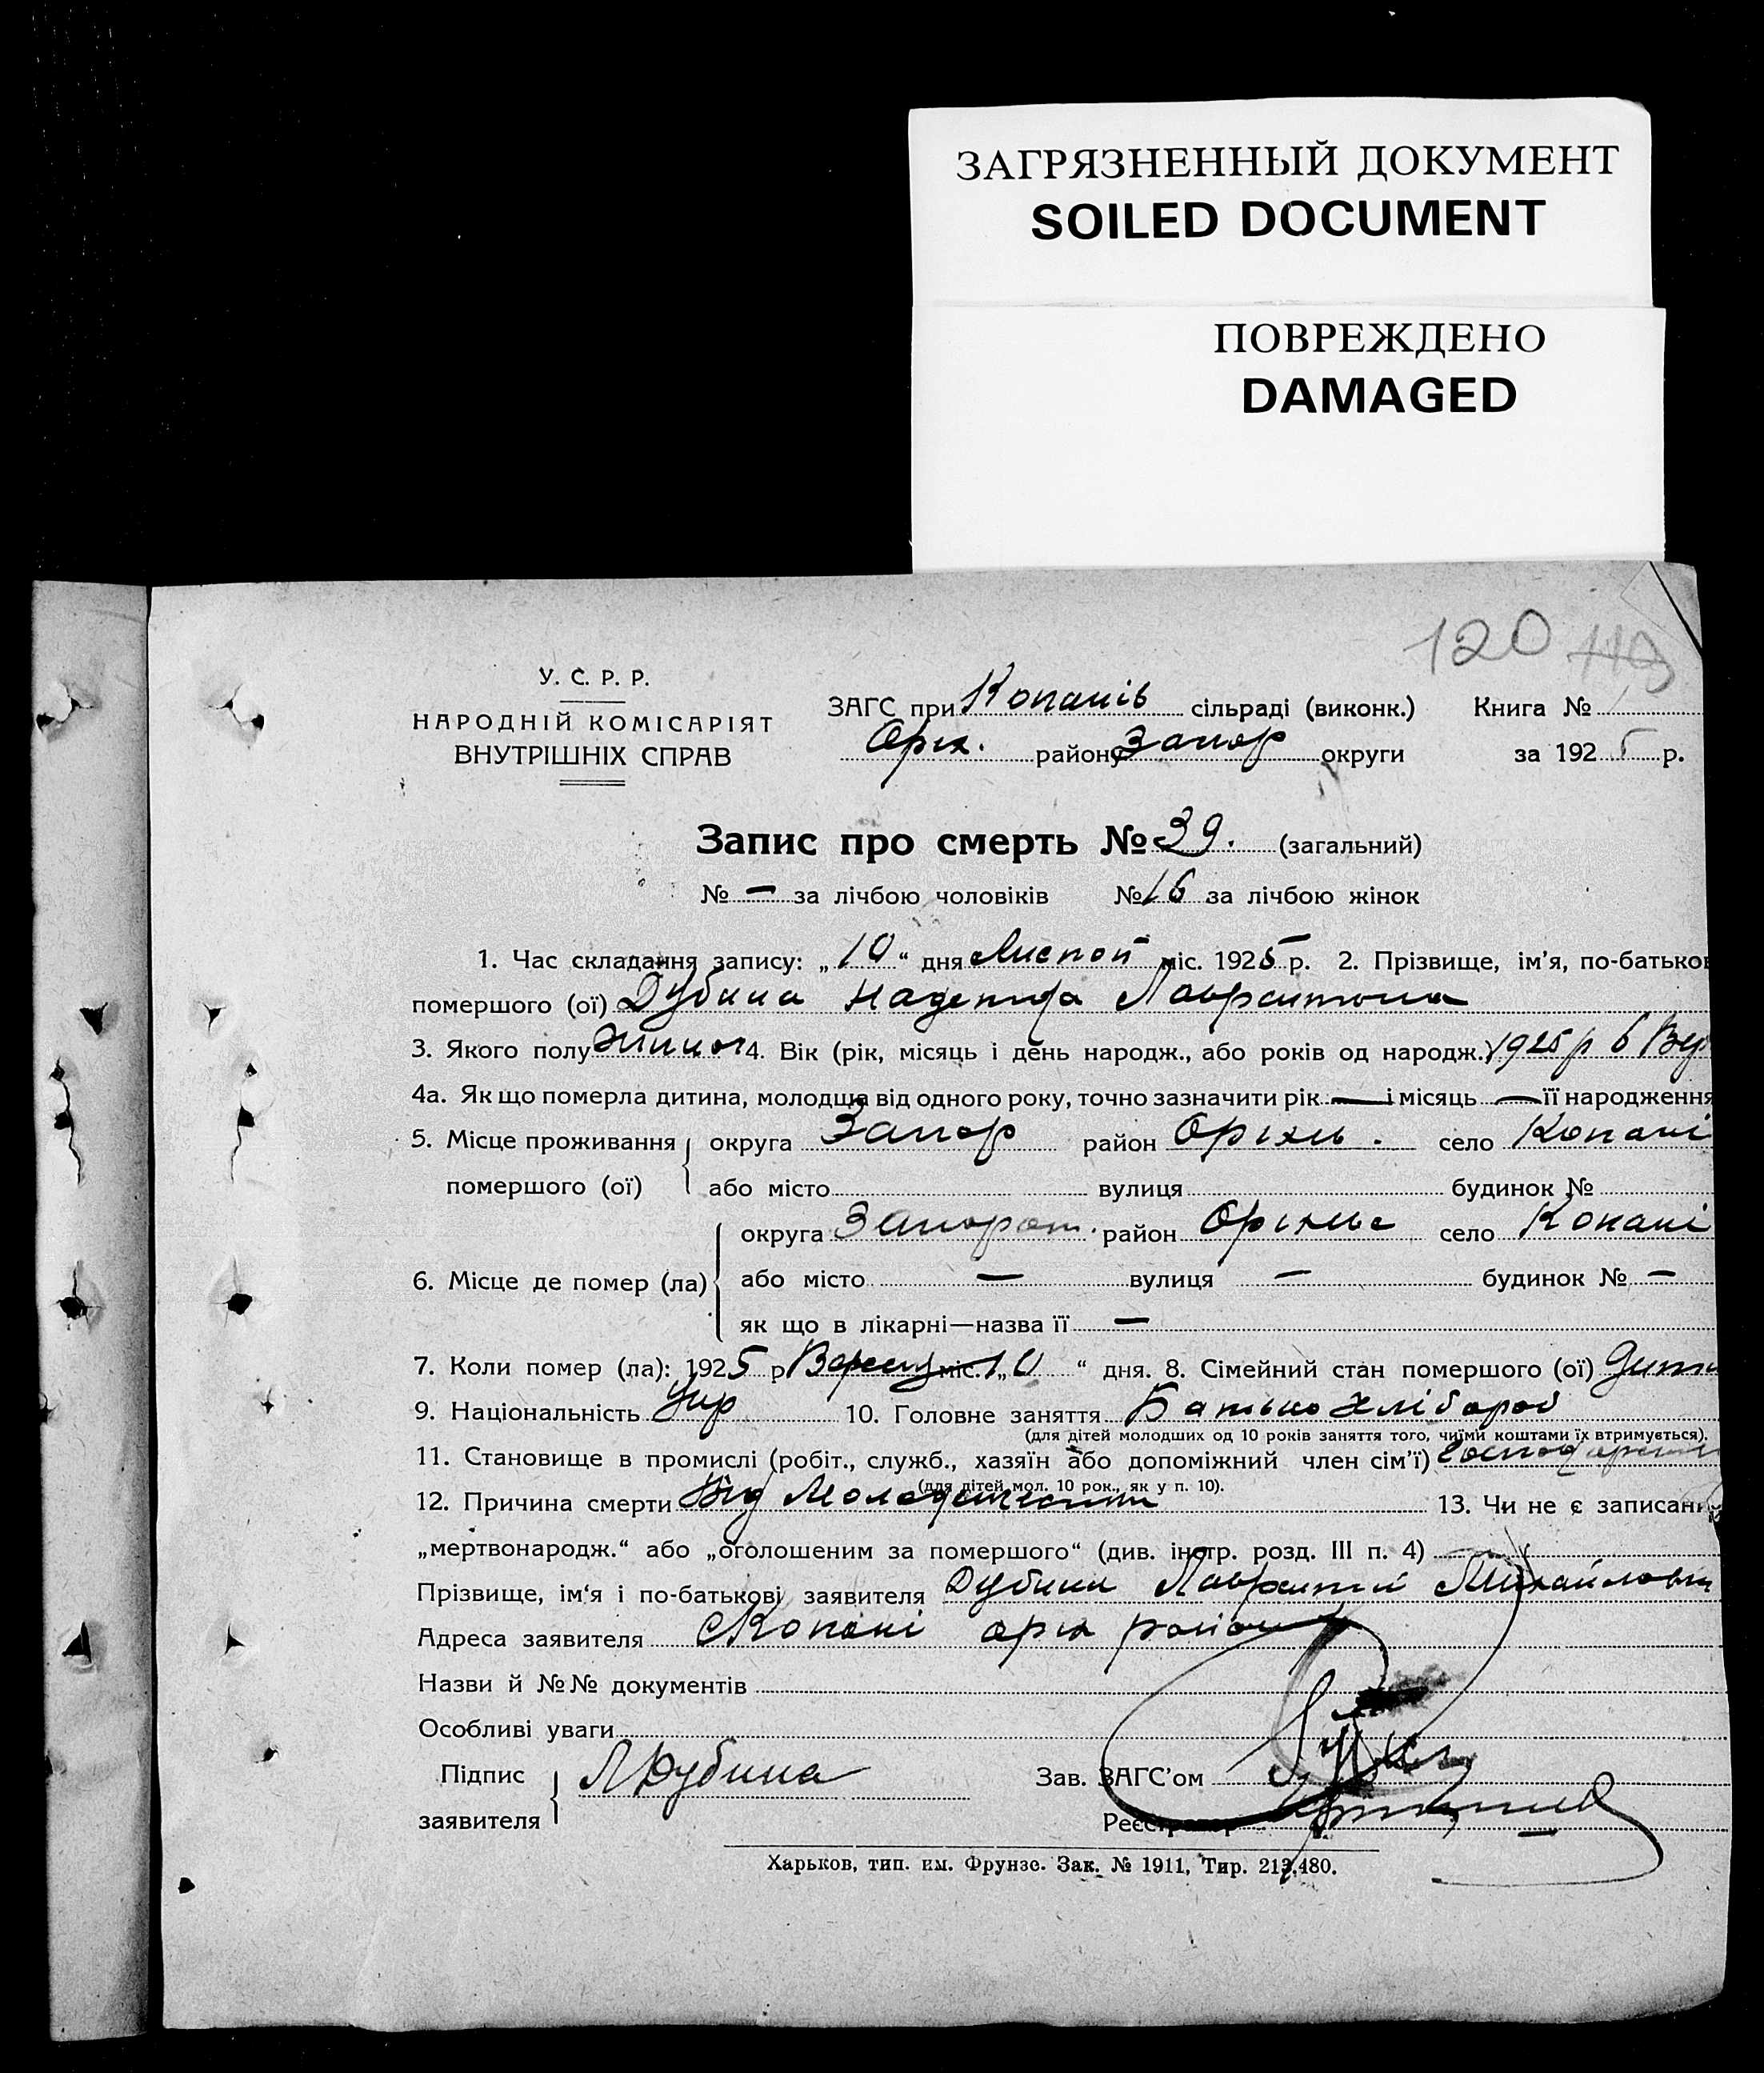 ЗАГРЯЗНЕННЫЙ ДОКУМЕНТ
SOILED DOCUMENT
ПОВРЕЖДЕНО
DAMAGED
120 119
У. С. Р. Р.
НАРОДНІЙ КОМІСАРІЯТ
ВНУТРІШНІХ СПРАВ
ЗАГС при Копанів сільраді (виконк.) Книга №
Оріх. району Запор округи за 1925 р.
Запис про смерть № 39. (загальний)
№ — за лічбою чоловіків № 16 за лічбою жінок
1. Час складання запису: „10“ дня Листоп міс. 1925 р. 2. Прізвище, ім'я, по-батьков
помершого (ої) Дубина Надежда
3. Якого полу 4. Вік (рік, місяць і день народж., або років од народж.) 1925 р 6 Вер
4а. Як що померла дитина, молодша від одного року, точно зазначити рік — і місяць — її народження
5. Місце проживання округа Запор район Оріхів. село Копані
помершого (ої) або місто вулиця будинок №
округа Запорож. район село Копані
6. Місце де помер (ла) або місто — вулиця — будинок № —
як що в лікарні—назва її —
7. Коли помер (ла): 1925 р міс. „10“ дня. 8. Сімейний стан помершого (ої) Дити
9. Національність Укр 10. Головне заняття Батько Хлібороб
(для дітей молодших од 10 років заняття того, чиїми коштами їх втримується).
11. Становище в промислі (робіт., служб., хазяїн або допоміжний член сім'ї)
(для дітей мол. 10 рок., як у п. 10).
12. Причина смерти Від 13. Чи не є записани
„мертвонародж.“ або „оголошеним за помершого“ (див. інстр. розд. III п. 4)
Прізвище, ім'я і по-батькові заявителя Дубина Лаврентий Михайлович
Адреса заявителя с Копані оріх району
Назви й №№ документів
Особливі уваги
Підпис Л Дубина Зав. ЗАГС'ом
заявителя Реєстратор
Харьков, тип. им. Фрунзе. Зак. № 1911, Тир. 213.480.